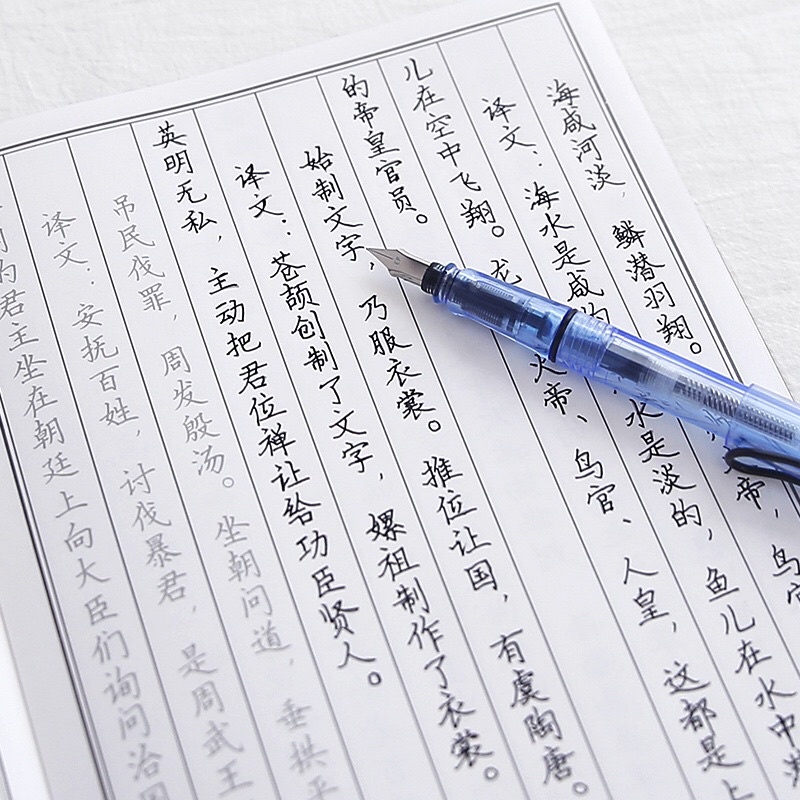 海咸河淡，鳞潜羽翔。 帝，鸟官
译文：海水是咸的 水是淡的，鱼儿在水中
儿在空中飞翔。龙 火帝、鸟官、人皇，这都是上
的帝皇官员。
始制文字，乃服衣裳。推位让国，有虞陶唐。
译文：苍颉创制了文字，嫘祖制作了衣裳。
英明无私，主动把君位禅让给功臣贤人。
吊民伐罪，周发殷汤。坐朝问道，垂拱平
译文：安抚百姓，讨伐暴君，是周武王
的君主坐在朝廷上向大臣们询问治国